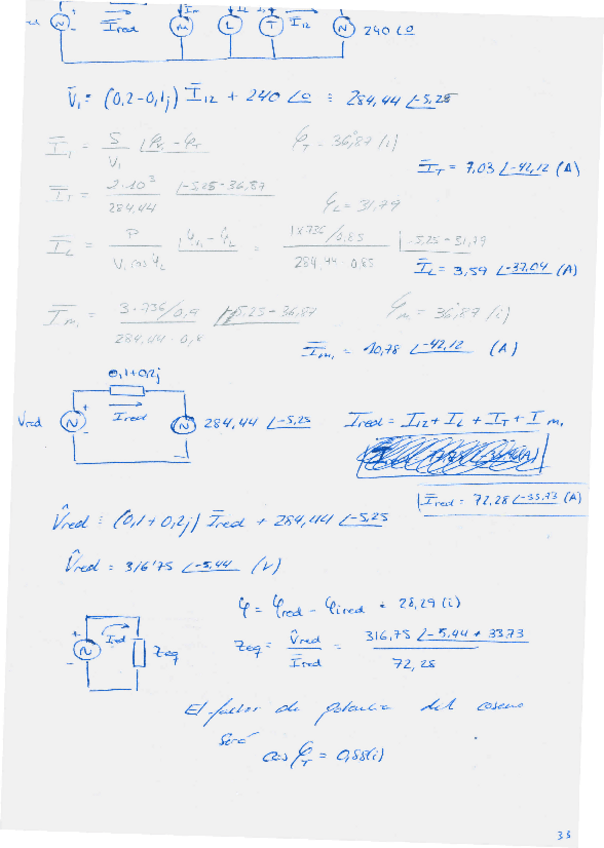 I̅red
m
L
T
I̅12
N
240 ∠0
V̄₁ = (0,2-0,1j) I̅12 + 240 ∠0 = 284,44 ∠-5,25
I̅₁ = S / V₁ ∠φv - φT
φT = 36,87 (i)
I̅T = 7,03 ∠-42,12 (A)
I̅T = 2·10³ / 284,44 ∠-5,25-36,87
φL = 31,79
I̅L = P / V₁ cos φL ∠φv₁ - φL = 1x736/0,85 / 284,44 · 0,85 ∠-5,25-31,79
I̅L = 3,59 ∠-37,04 (A)
I̅m₁ = 3·736/0,9 / 284,44 · 0,8 ∠-5,25-36,87
φm = 36,87 (i)
I̅m₁ = 10,78 ∠-42,12 (A)
0,1+0,2j
Vred
I̅red
N
284,44 ∠-5,25
Ired = I12 + IL + IT + Im₁
I̅red = 72,28 ∠-33,73 (A)
V̂red = (0,1+0,2j) I̅red + 284,44 ∠-5,25
V̂red = 316'75 ∠-5,44 (V)
φ = φred - φired = 28,29 (i)
Ired
Zeq
Zeq = V̂red / I̅red = 316,75 ∠-5,44+33,73 / 72,28
El factor de potencia del coseno
será
cos φT = 0,88(i)
33